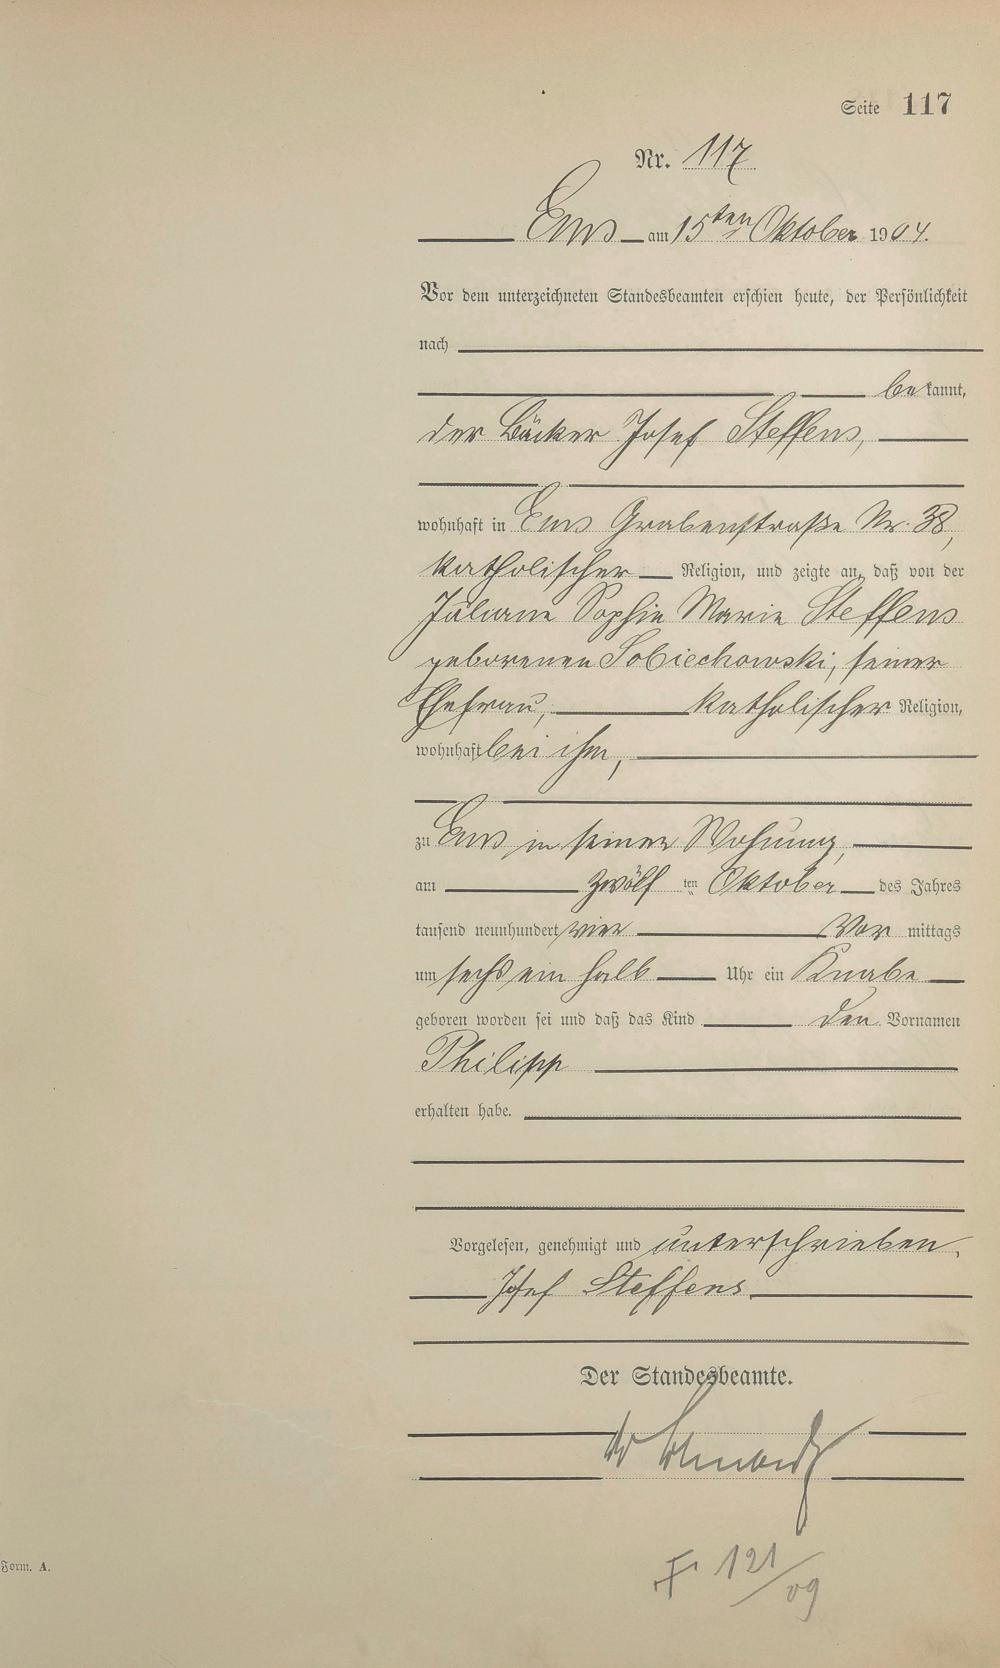 Seite 117
Nr. 117
Ems am 15ten Oktober 1904.
Vor dem unterzeichneten Standesbeamten erschien heute, der Persönlichkeit
nach
bekannt,
der Bäcker Josef Steffens,
wohnhaft in Ems Grabenstraße Nr. 38,
katholischer Religion, und zeigte an, daß von der
Juliane Sophie Marie Steffens
geborenen Sobiechowski, seiner
Ehefrau, katholischer Religion,
wohnhaft bei ihm,
zu Ems in seiner Wohnung,
am zwölf ten Oktober des Jahres
tausend neunhundert vier Vor mittags
um sechs ein halb Uhr ein Knabe
geboren worden sei und daß das Kind den Vornamen
Philipp
erhalten habe.
Vorgelesen, genehmigt und unterschrieben.
Josef Steffens
Der Standesbeamte.
F 121/09
Form. A.